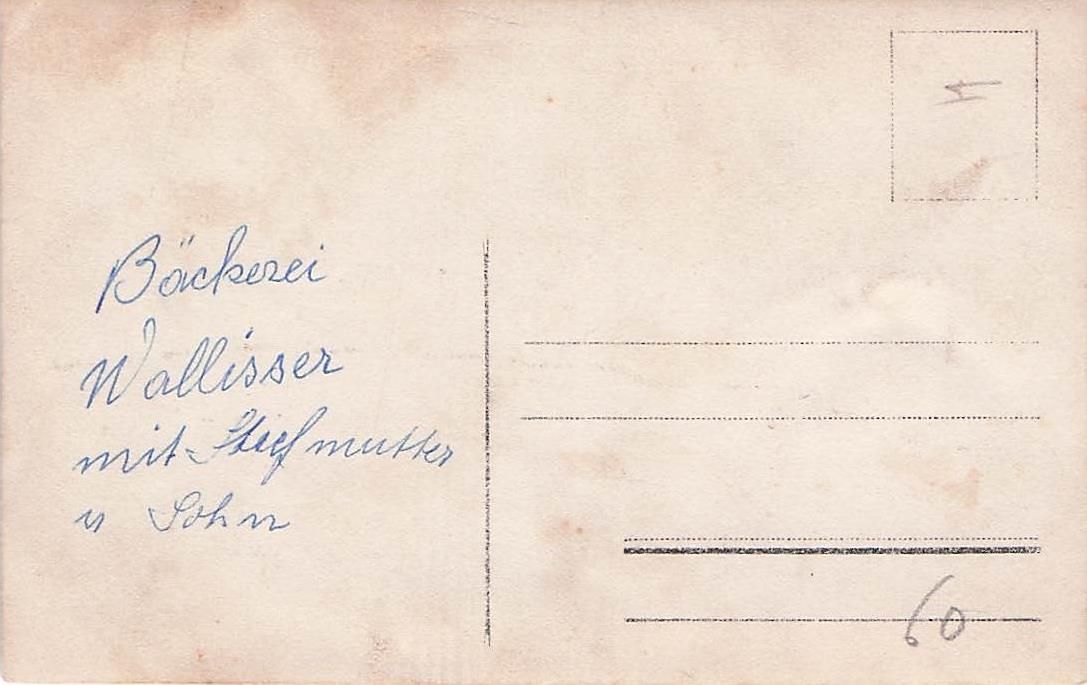 Bäckerei
Wallisser
mit Stiefmutter
u Sohn
60